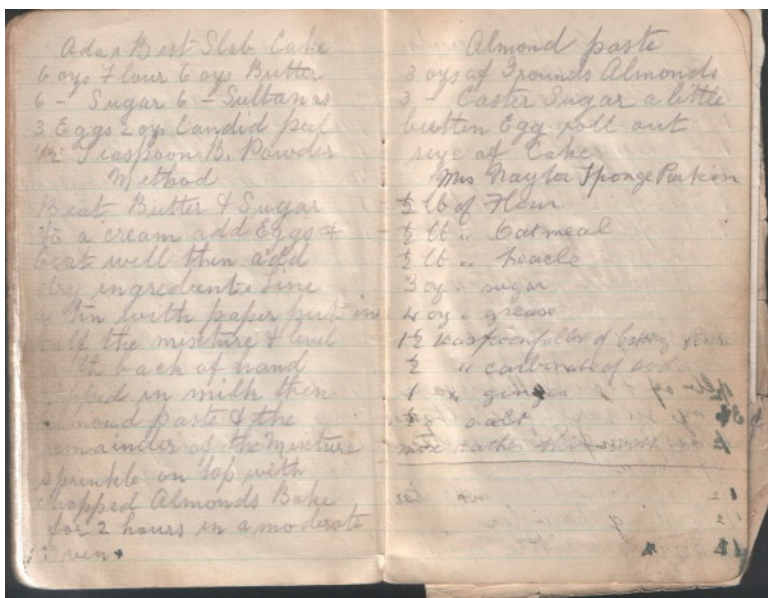 Ada's Best Slab Cake
6 ozs Flour 6 ozs Butter
6 - Sugar 6 - Sultanas
3 Eggs 2 oz. Candid peel
1/2 Teaspoon B. Powder
Method
Beat Butter & Sugar
to a cream add Eggs &
beat well then add
dry ingredients Line
a tin with paper put in
half the mixture & level
with back of hand
dipped in milk then
almond paste & the
remainder of the Mixture
sprinkle on top with
chopped Almonds Bake
for 2 hours in a moderate
Oven
Almond paste
3 ozs of Grounds Almonds
3 - Caster Sugar a little
beatten Egg roll out
size of Cake
Mrs Naylor Sponge Parkin
½ lb of Flour
½ lb " Oatmeal
½ lb " treacle
3 oz " sugar
4 oz " grease
1½ teaspoonfulls of baking
½ " carbonate of soda
1 " ginger
salt
mix rather thin with